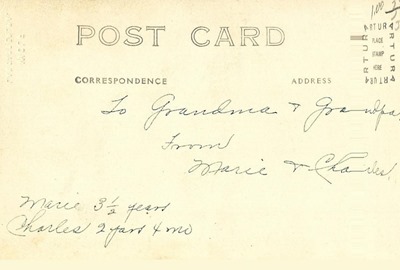 1.00
POST CARD
ARTURA
PLACE
STAMP
HERE
CORRESPONDENCE
ADDRESS
To Grandma & Grandpa
From
Marie & Charles
Marie 3 1/2 years
Charles 2 years 4 mo